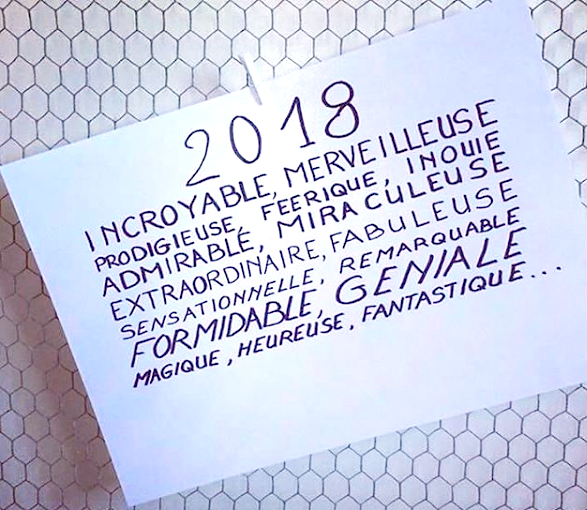 2018
INCROYABLE, MERVEILLEUSE
PRODIGIEUSE, FEERIQUE, INOUIE
ADMIRABLE, MIRACULEUSE
EXTRAORDINAIRE, FABULEUSE
SENSATIONNELLE, REMARQUABLE
FORMIDABLE, GENIALE
MAGIQUE, HEUREUSE, FANTASTIQUE...